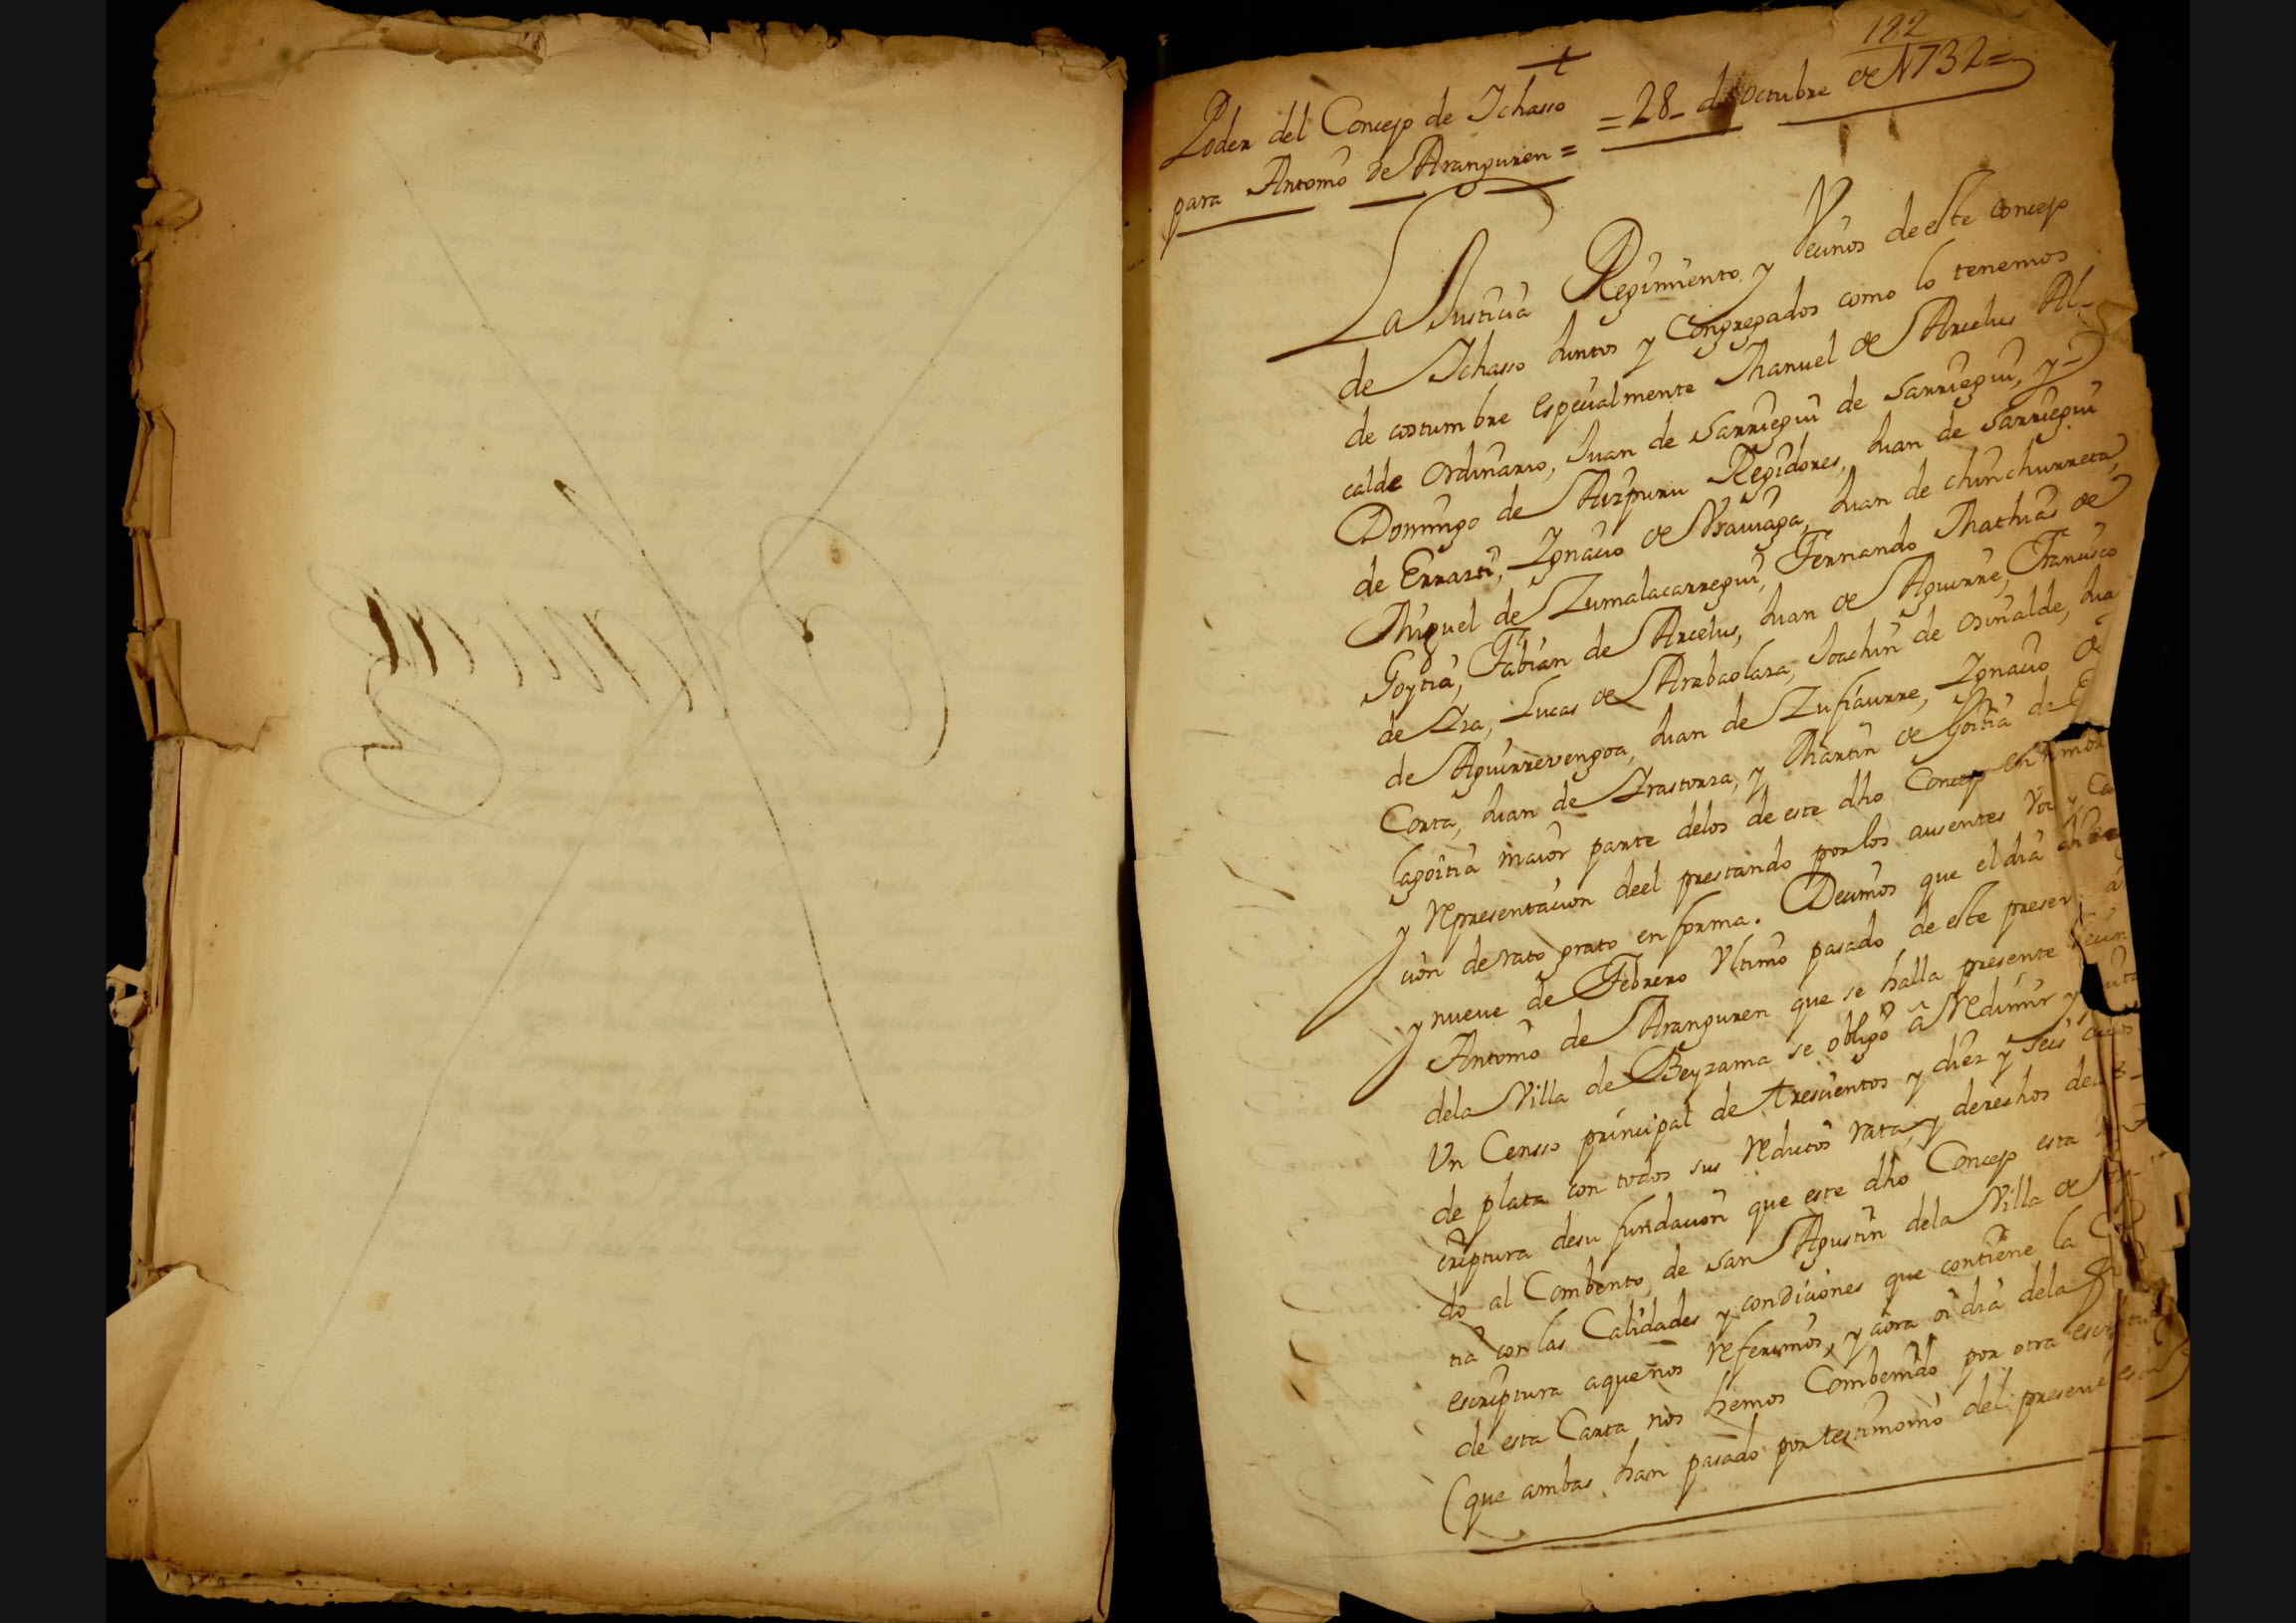 182
Poder del Concejo de Ichasso
para Antonio de Aranguren =
= 28 de octubre de 1732 =
La Justicia Regimiento, y Vecinos de este concejo
de Ichasso Juntos y Congregados como lo tenemos
de costumbre especialmente Manuel de Arcelus Al-
calde Ordinario, Juan de Sarriegui de Sarriegui, y
Domingo de Aizpuru Regidores, Juan de Sarriegui
de Errazti, Ignacio de Vrauiaga, Juan de chinchurreta,
Miguel de Zumalacarregui, Fernando Mathias de
Goytia, Fabian de Arcelus, Juan de Aguirre, Francisco
de Lra, Lucas de Arrbaolaza, Joachin de Osinalde, Jua
de Aguirrevengoa, Juan de Zufiaurre, Ignacio de
Corta, Juan de Yrastorza, y Martin de Goitia de E
lagoitia maior parte delos de este dho Concejo en
y representacion deel prestando por los ausentes Voz y Cau
cion de rato grato en forma. Decimos que el dia
y nueue de Febrero Vltimo pasado de este presen a
Antonio de Aranguren que se halla presente Vecin
dela Villa de Beyzama se obligo â Redimir y
Vn Censso principal de trescientos y diez y seis
de plata con todos sus reditos rata, y derechos dela es-
criptura desu fundacion que este dho Concejo esta
do al Combento de San Agustin dela Villa de
tia con las Calidades y condiciones que contiene la
escriptura aque nos referimos, y aora oi dia dela
de esta Carta nos hemos Combenido por otra escriptu
(que ambas han pasado por testimonio del presente